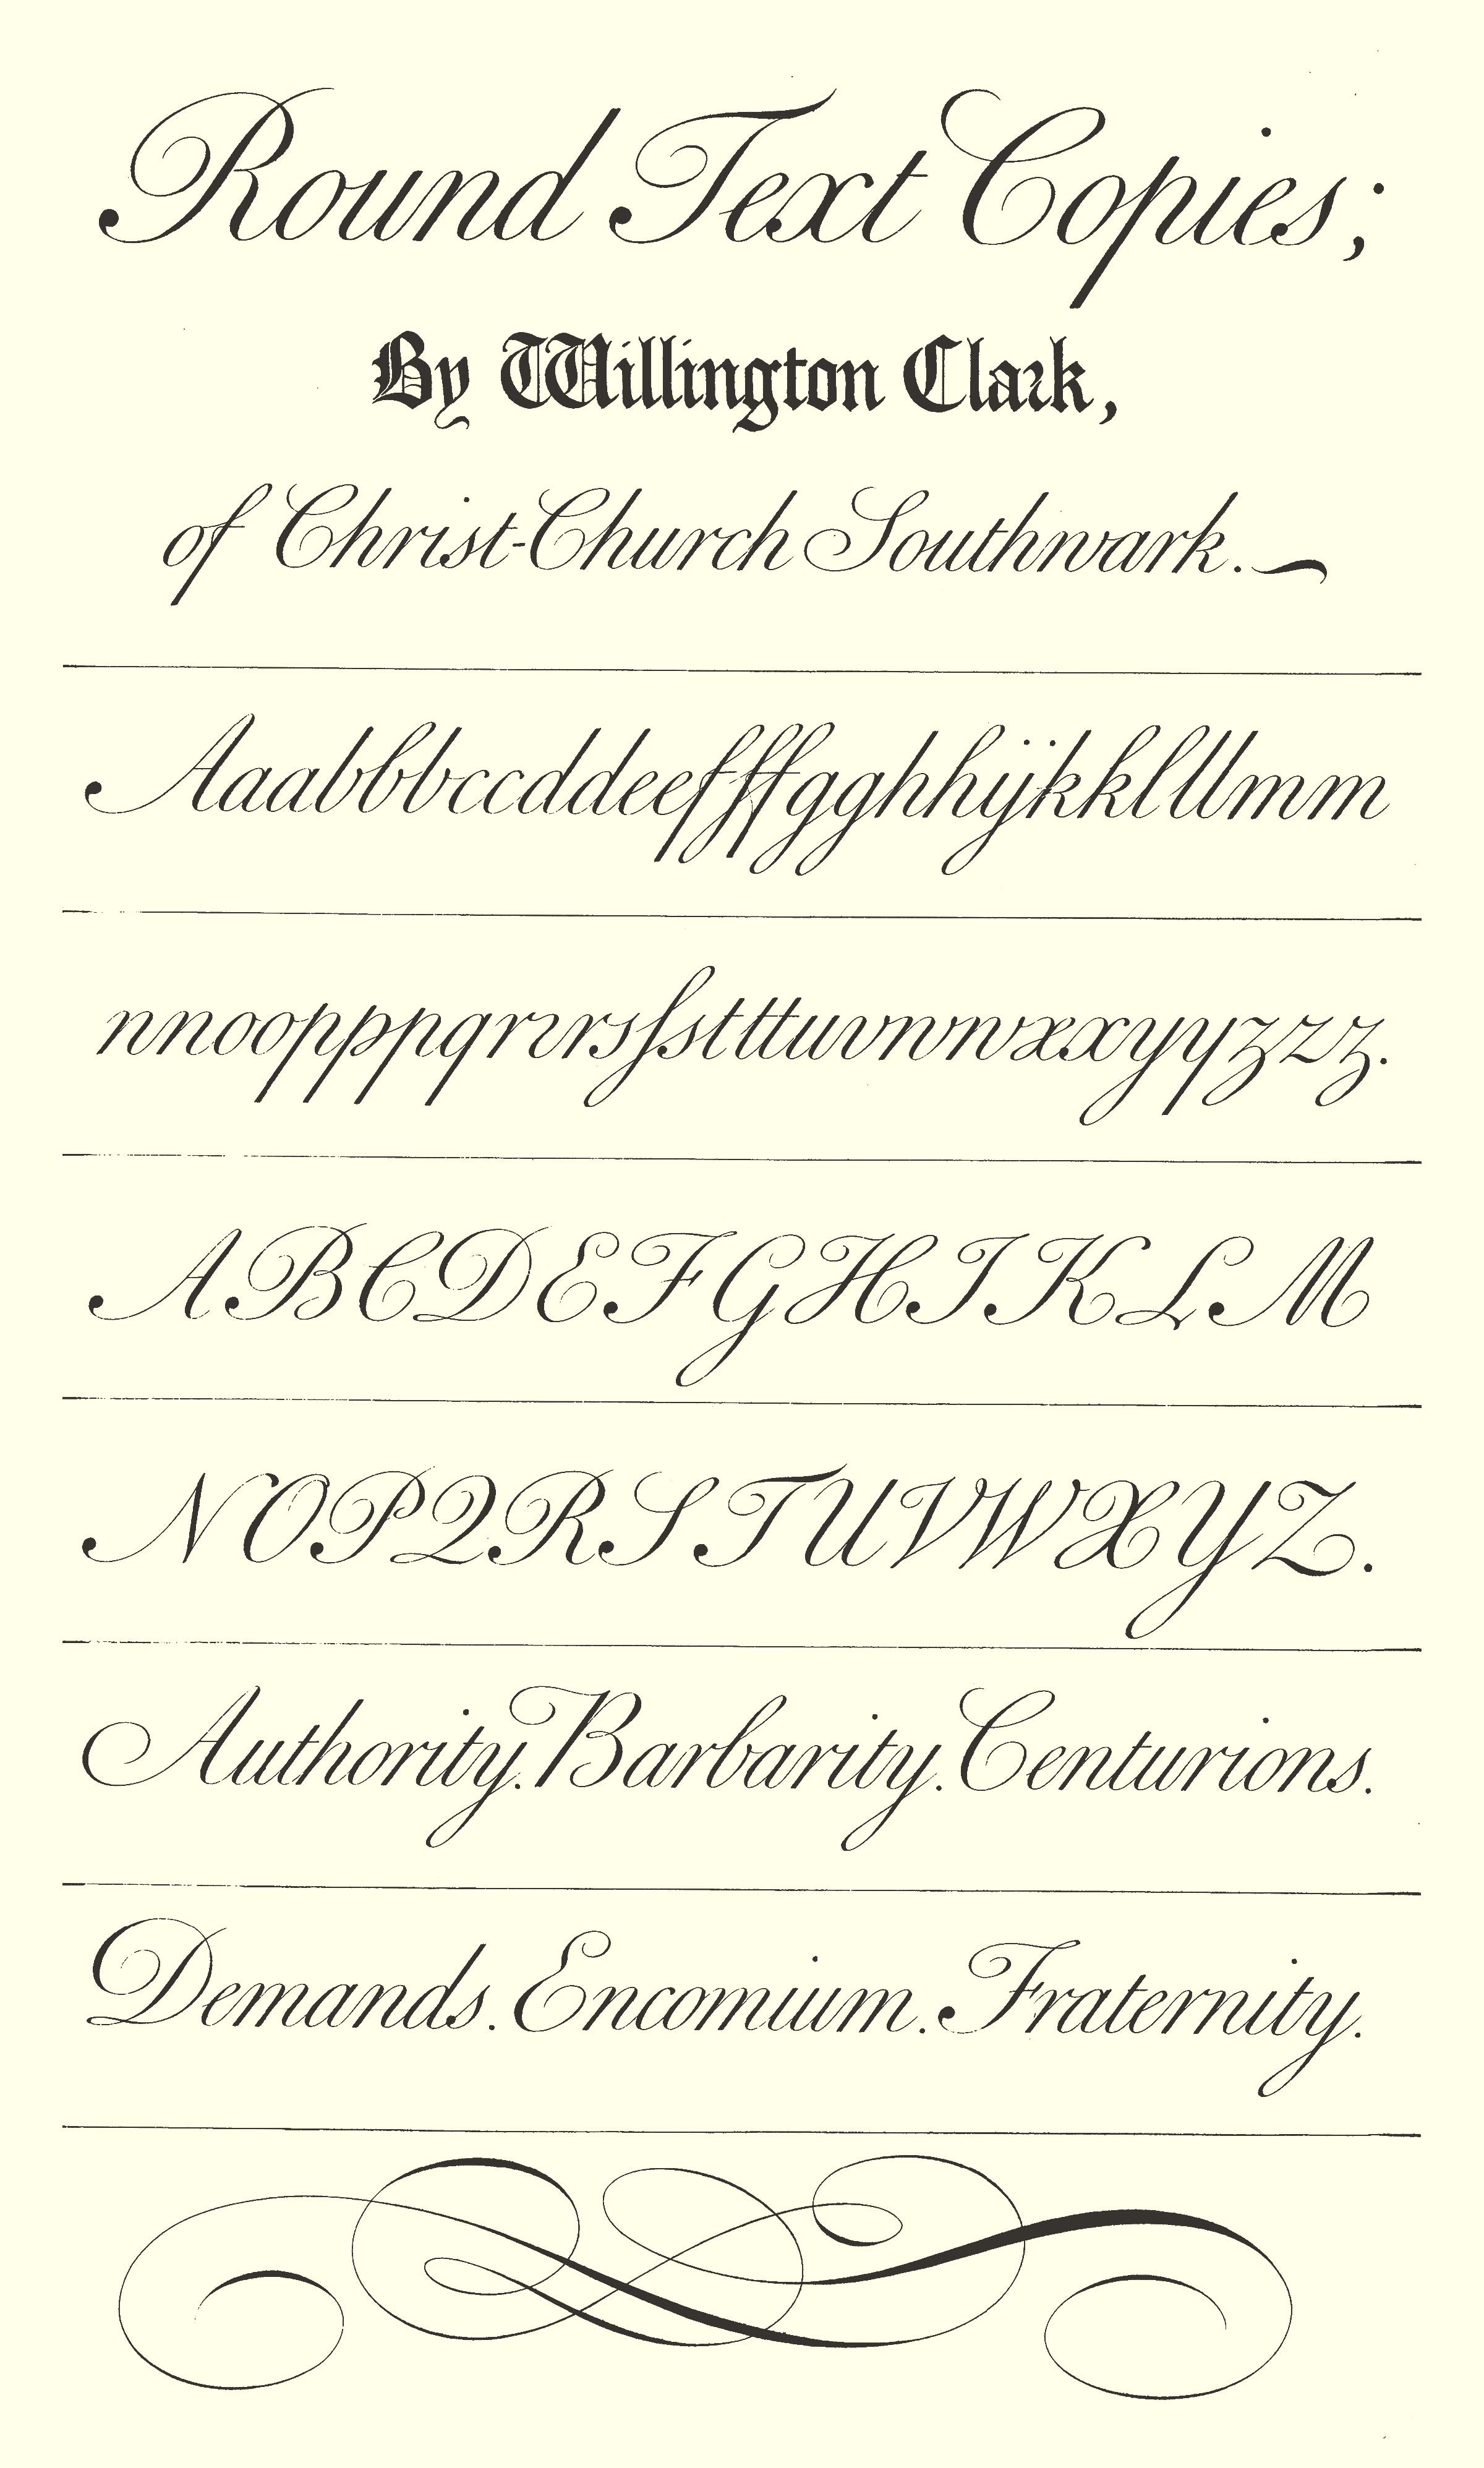 Round Text Copies;
By Willington Clark,
of Christ-Church Southwark.
Aaabbbccddeefffgghhijkklllmm
nnoopppqrrrsſstttuvwwxxyyzzz.
ABCDEFGHIKLM
NOPQRSTUVWXYZ.
Authority. Barbarity. Centurions.
Demands. Encomium. Fraternity.